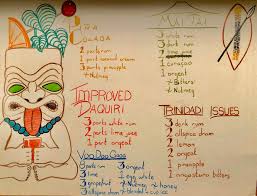 2 parts rum
1 part coconut cream
3 parts pineapple
+ Nutmeg
IMPROVED
DAQUIRI
3 parts white rum
2 parts lime
1 part orgeat
Voo Doo
3
1 lime
3 grapefruit
3 orgeat
1 egg white
MAI TAI
3 white rum
3 dark rum
2 lime
1 curaçao
1 orgeat
+ nutmeg
TRINIDAD ISSUES
3 dark rum
2 allspice dram
2 lemon
1 orgeat
1 pineapple
1 angostura bitters